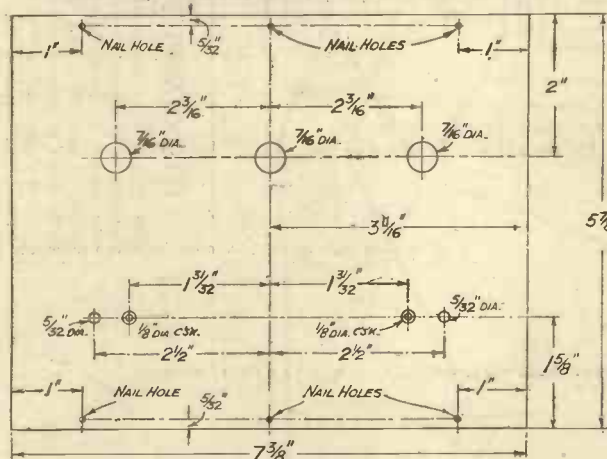 NAIL HOLE
5/32"
NAIL HOLES
1"
1"
2"
2 3/16"
2 3/16"
7/16" DIA.
7/16" DIA.
7/16" DIA.
3 11/16"
1 31/32"
1 31/32"
5/32" DIA.
1/8" DIA. CSK.
1/8" DIA. CSK.
5/32" DIA.
2 1/2"
2 1/2"
1 5/8"
1"
NAIL HOLE
5/32"
NAIL HOLES
1"
7 3/8"